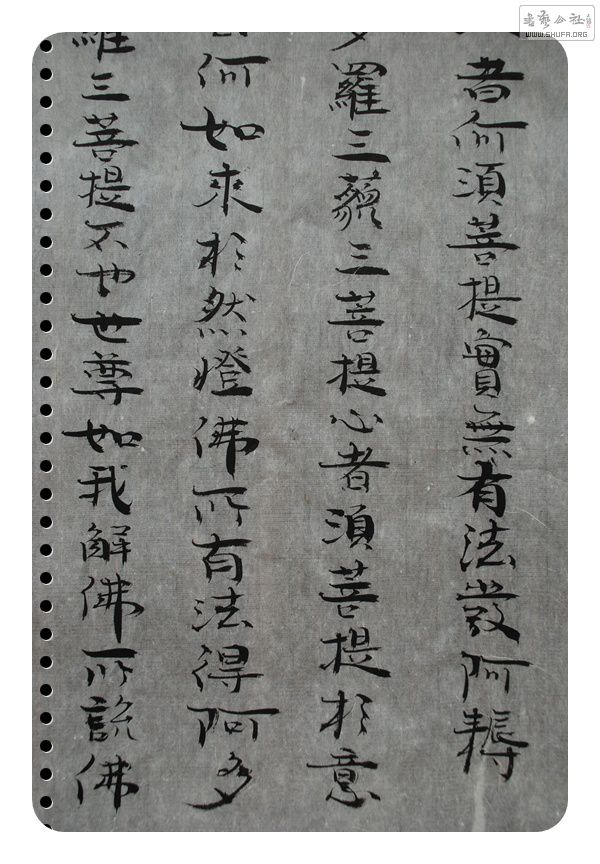 書藝公社
WWW.SHUFA.ORG
者何須菩提實無有法發阿耨
多羅三藐三菩提心者須菩提於意
云何如來於然燈佛所有法得阿多
羅三菩提不也世尊如我解佛所說佛